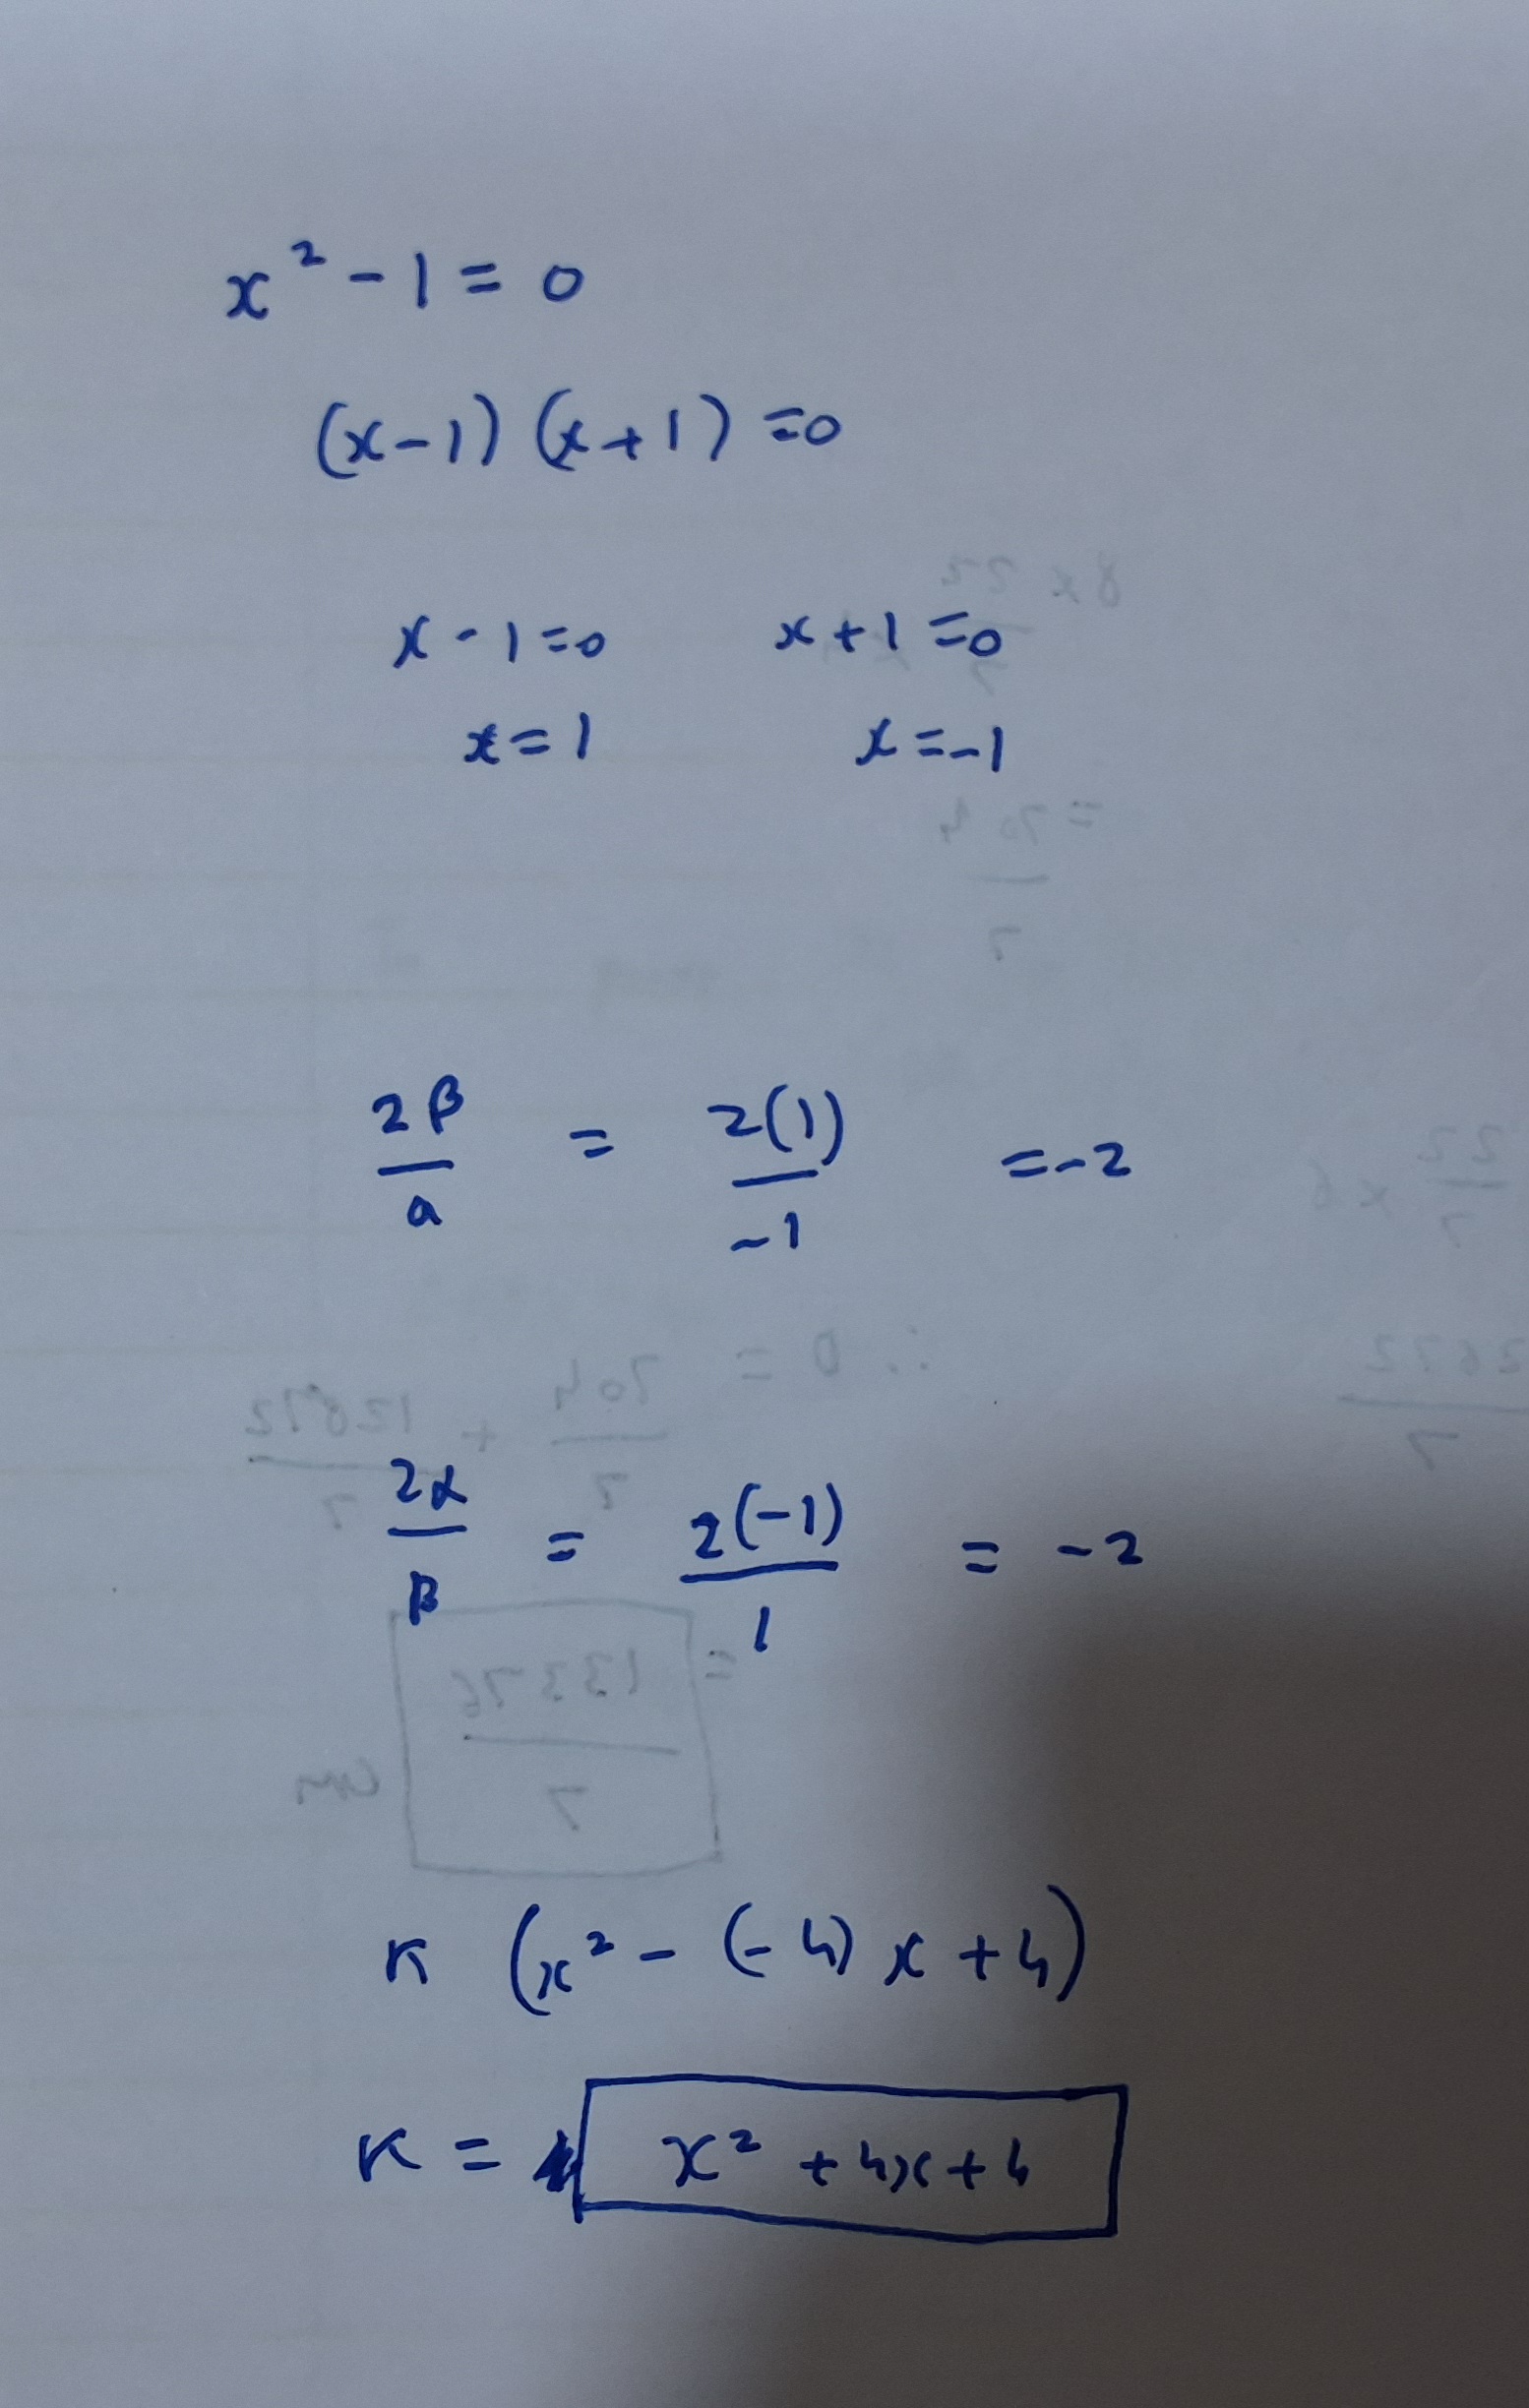 x² - 1 = 0
(x-1) (x+1) =0
x - 1 =0    x + 1 =0
x = 1    x = -1
2β/a = 2(1)/-1 = -2
2α/β = 2(-1)/1 = -2
K (x² - (-4) x + 4)
K = x² + 4x + 4